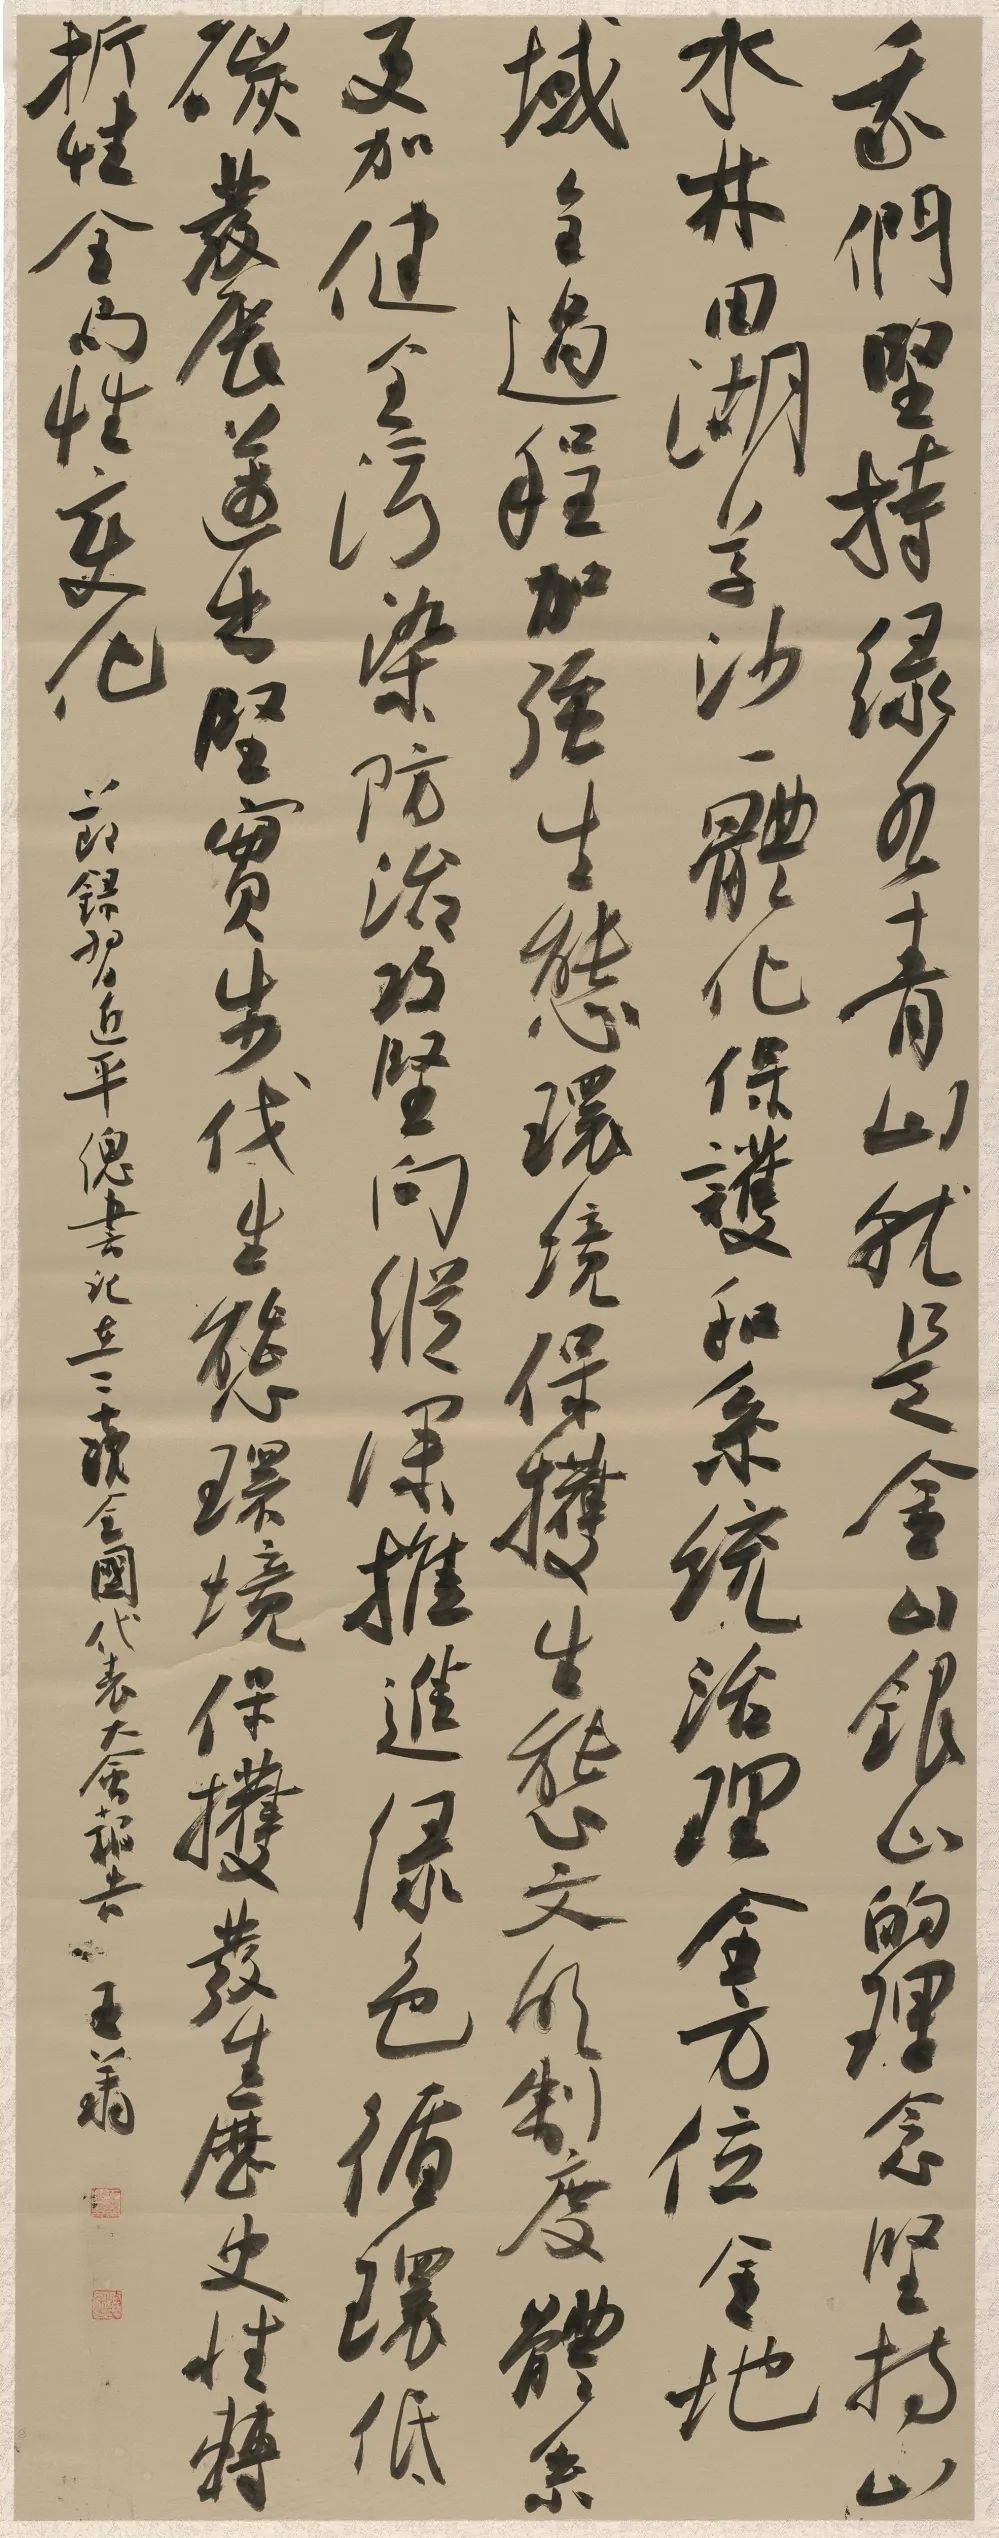 我們堅持綠水青山就是金山銀山的理念堅持山
水林田湖草沙一體化保護和系統治理全方位全地
域全過程加強生態環境保護生態文明制度體系
更加健全污染防治攻堅向縱深推進綠色循環低
碳發展邁出堅實步伐生態環境保護發生歷史性轉
折性全局性變化
節錄習近平總書記在二十全國代表大會報告 王